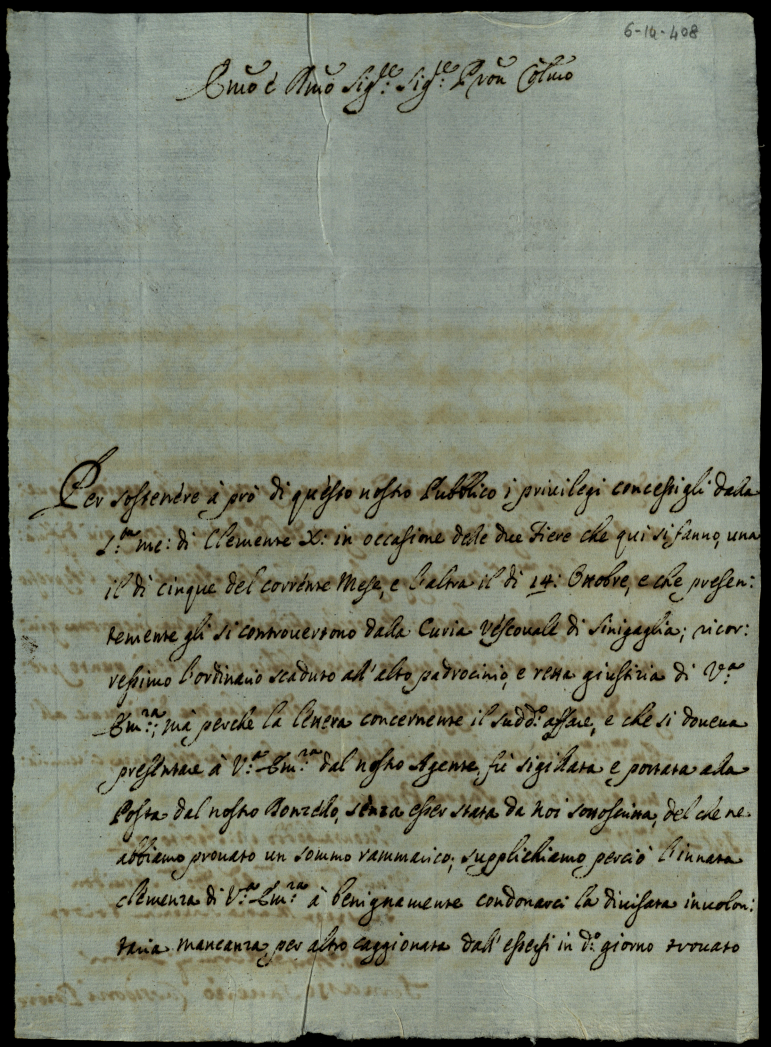 6-14-408
Emo e Rmo Sigre: Sigre: Pron Colmo
Per sostenére à prò di questo nostro Pubblico i privilegi concessigli dalla
S:ta me: di Clemente X: in occasione dele due Fiere che qui si fanno, una
il di cinque del corrénte Mese, e l'altra il di 14: Ottobre, e che presen:
temente gli si controvertono dalla Curia Véscovale di Sinigaglia; ricor:
ressimo l'ordinario scaduto all'alto padrocinio, e retta giustizia di V:a
Em:za; mà perche la léttera concernente il sudd:o affare, e che si doveva
preséntare à V:a Em:za dal nostro Agente, fù sigillata e portata alla
Posta dal nostro Donzello, sénza esser stata da noi sottoscritta, del che ne
abbiamo provato un sommo rammarico; supplichiamo perciò l'innata
cleménza di V:a Em:za à benignamente condonarci la divisata involon:
taria mancanza, per altro caggionata dall'essersi in d:o giorno trovato